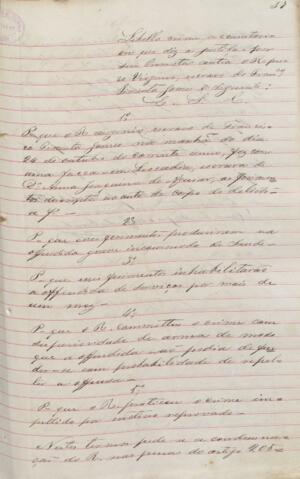 Libello crime accusatorio
em que diz a justiça por
seu Promotor contra o R.
escravo de
E. S. C.
1º
P. que o R. escravo de Francisco
na manhã do dia
24 de outubro do corrente anno, fez com
uma faca em escrava de
D. Anna Joaquina de os
no auto de corpo de delicto
a f.
2º
P. que esses ferimentos produziram na
offendida grave incommodo de saude.
3º
P. que esses ferimentos inhabilitarão
a offendida de serviços por mais de
um mez.
4º
P. que o R. commetteu o crime com
superioridade de armas de modo
que a offendida não podia defen
der-se com probabilidade de repel
lir a offensa.
5º
P. que o R. praticou o crime im
pellido por motivo reprovado.
Nestes termos pede-se a condemna
ção do R. nas penas do artigo 205